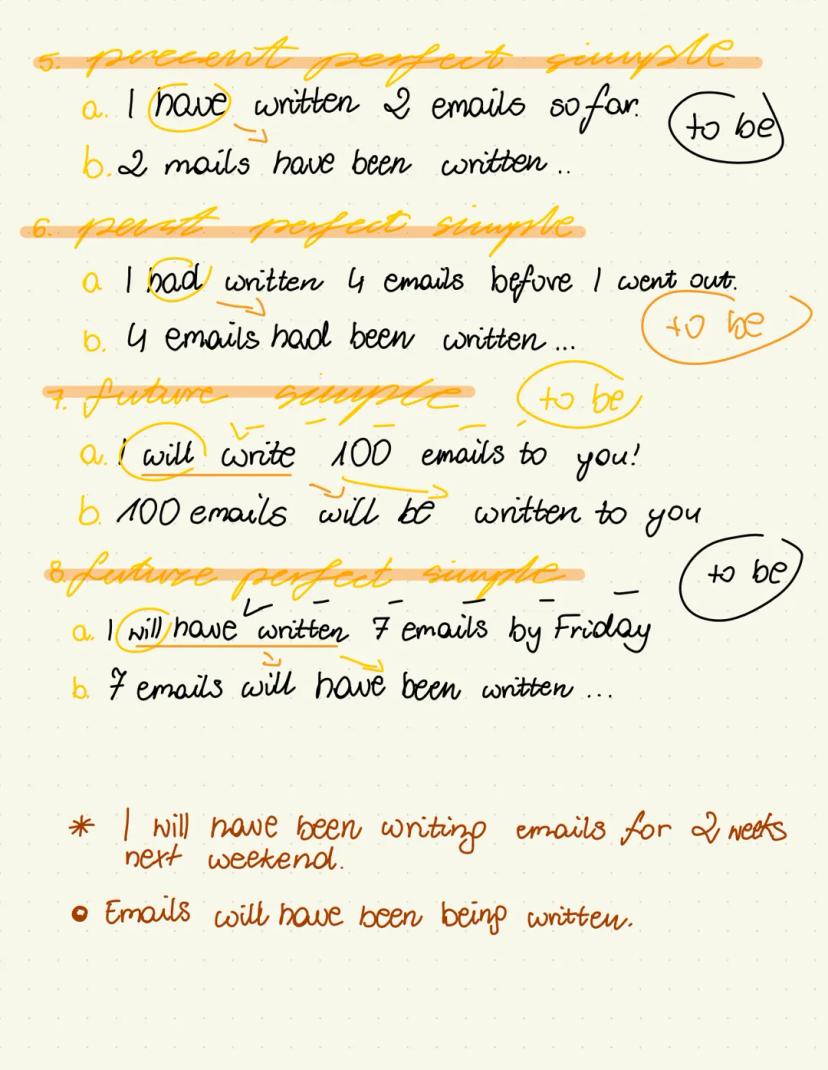 5. present perfect simple
a. I have written 2 emails so far.
to be
b. 2 mails have been written ..
6. past perfect simple
a I had written 4 emails before I went out.
to be
b. 4 emails had been written ...
7. future simple
to be
a. I will write 100 emails to you!
b. 100 emails will be written to you
8. future perfect simple
to be
a. I will have written 7 emails by Friday
b. 7 emails will have been written ...
* I will have been writing emails for 2 weeks
next weekend.
• Emails will have been being written.